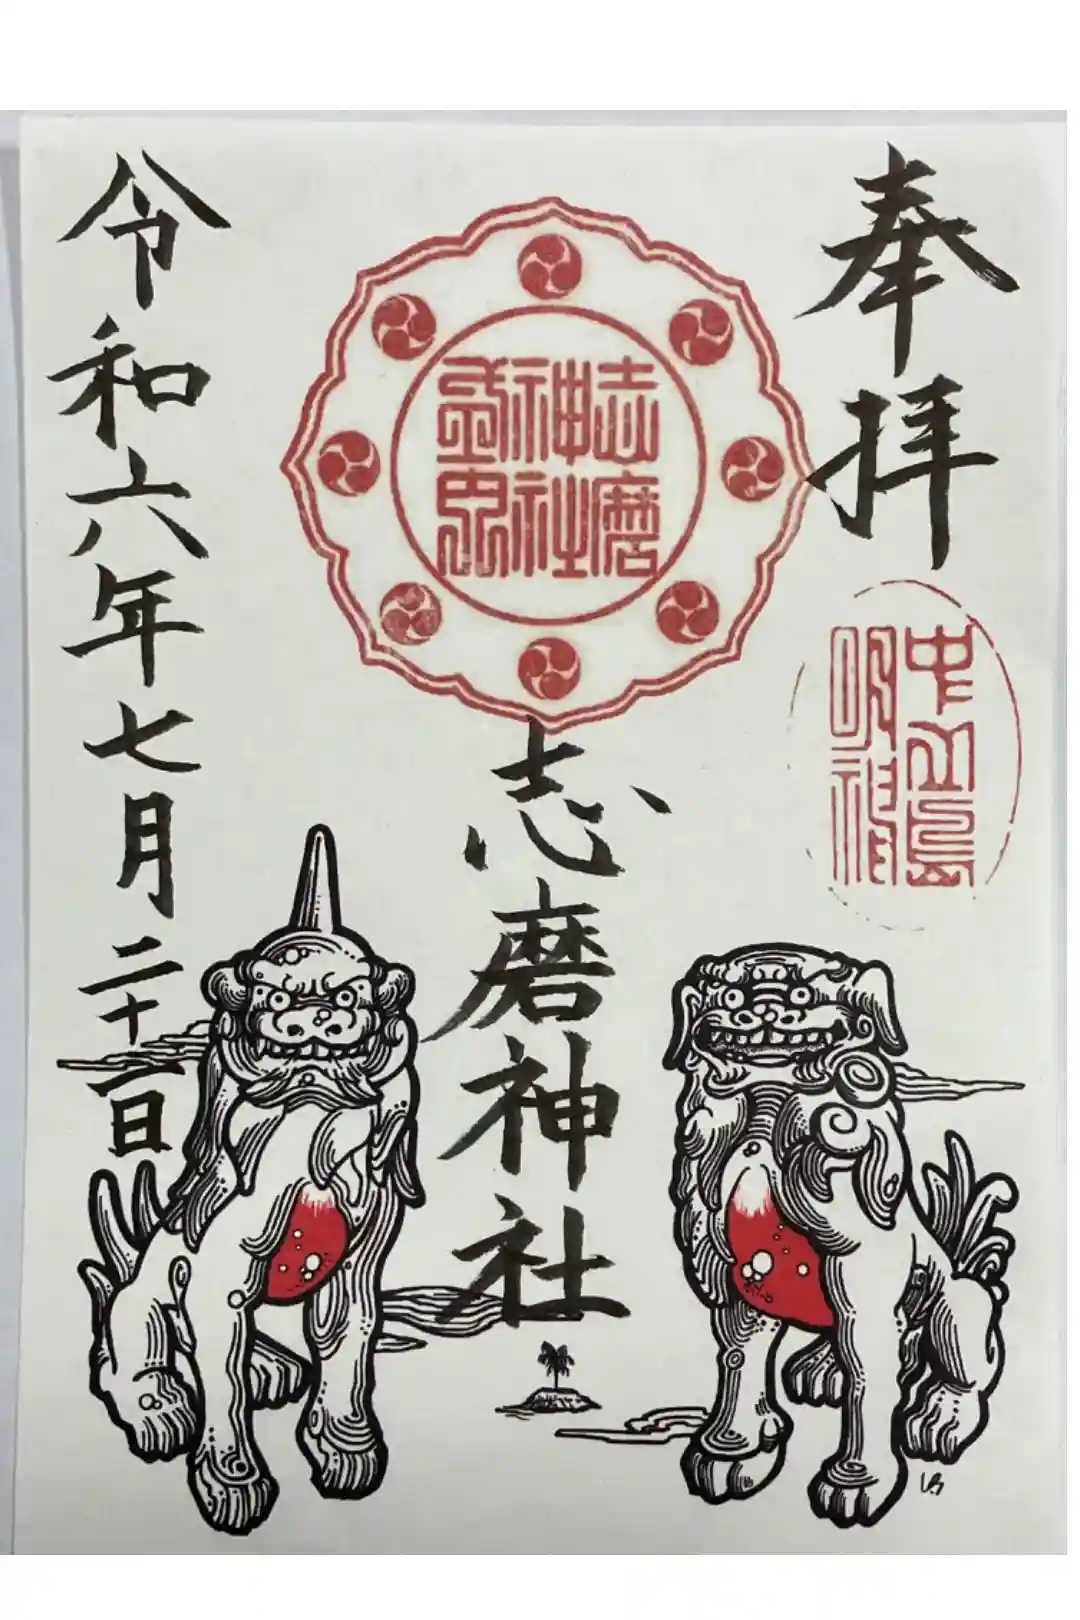 奉拝
中之島
明神
志磨
神社
志磨神社
令和六年七月二十一日